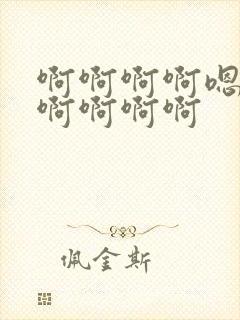 啊啊啊啊嗯
啊啊啊啊
佩金斯